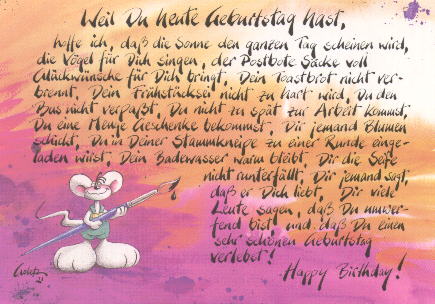 Weil Du heute Geburtstag hast,
hoffe ich, daß die Sonne den ganzen Tag scheinen wird,
die Vögel für Dich singen, der Postbote Säcke voll
Glückwünsche für Dich bringt, Dein Toastbrot nicht ver-
brennt, Dein Frühstücksei nicht zu hart wird, Du den
Bus nicht verpaßt, Du nicht zu spät zur Arbeit kommst,
Du eine Menge Geschenke bekommst, Dir jemand Blumen
schickt, Du in Deiner Stammkneipe zu einer Runde einge-
laden wirst, Dein Badewasser warm bleibt, Dir die Seife
nicht runterfällt, Dir jemand sagt,
daß er Dich liebt, Dir viele
Leute sagen, daß Du umwer-
fend bist und daß Du einen
sehr schönen Geburtstag
verlebst!
Happy Birthday!